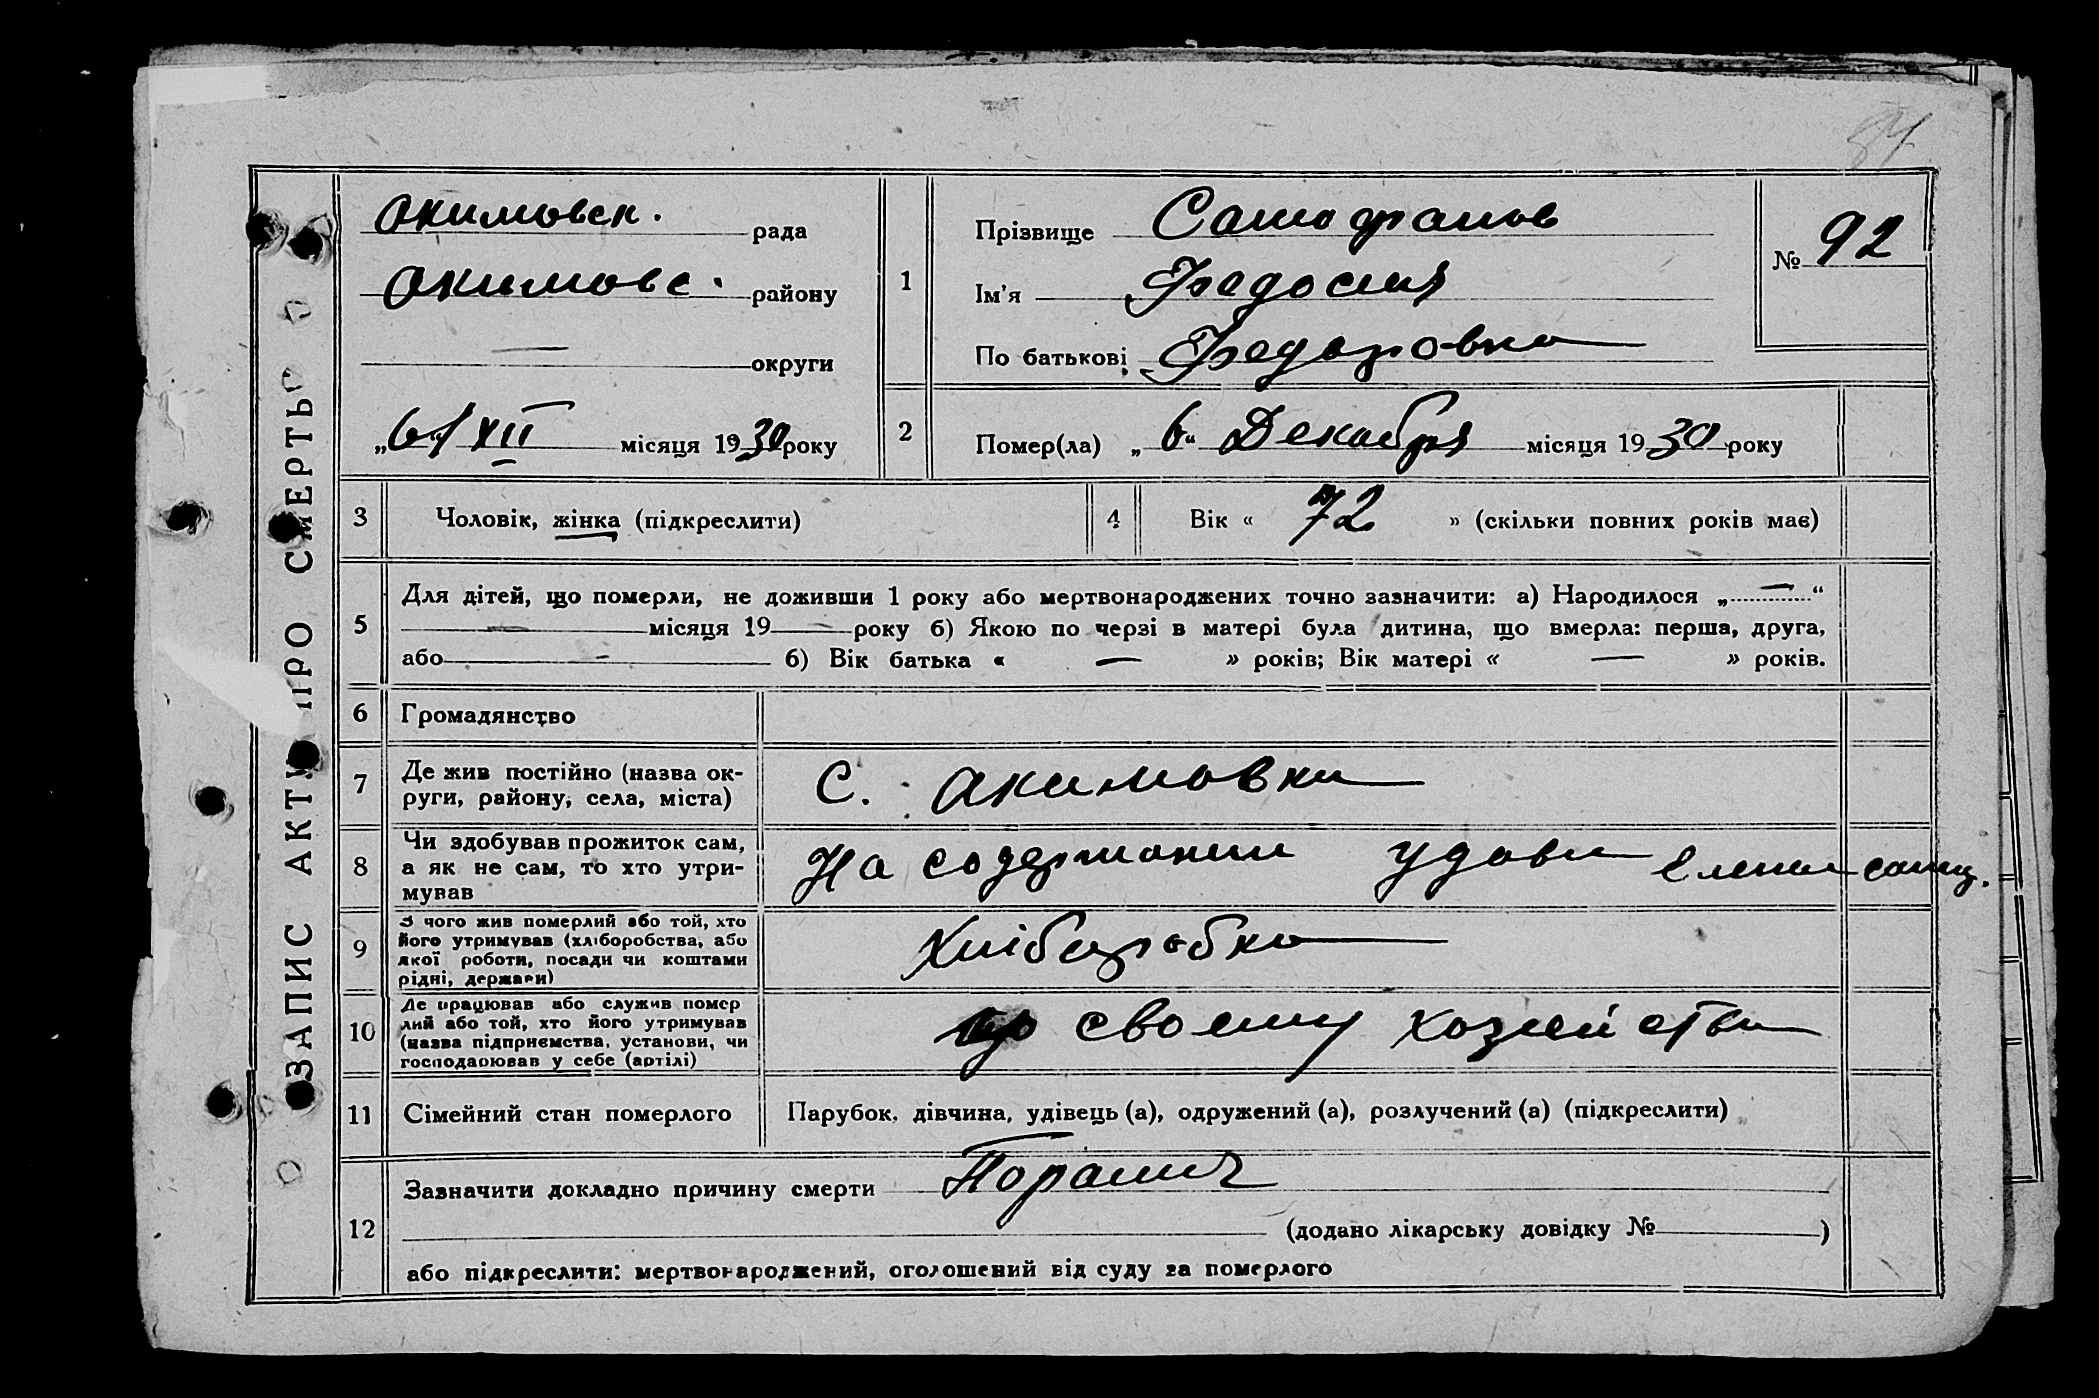 87
ЗАПИС АКТУ ПРО СМЕРТЬ
Акимовск. рада
Акимовс. району
— округи
„6“/XII місяця 1930 року
1
Прізвище
Ім'я Федосия
По батькові Федоровна
№ 92
2
Помер(ла) „6“ Декабря місяця 1930 року
3
Чоловік, жінка (підкреслити)
4
Вік « 72 » (скільки повних років має)
5
Для дітей, що померли, не доживши 1 року або мертвонароджених точно зазначити: а) Народилося „ — “
— місяця 19 — року б) Якою по черзі в матері була дитина, що вмерла: перша, друга,
або — б) Вік батька « — » років; Вік матері « — » років.
6
Громадянство
7
Де жив постійно (назва ок-
руги, району, села, міста)
С. Акимовка
8
Чи здобував прожиток сам,
а як не сам, то хто утри-
мував
На содержании удови Елени
9
З чого жив померлий або той, хто
його утримував (хліборобства, або
якої роботи, посади чи коштами
рідні, держави)
Хліборобка
10
Де працював або служив помер
лий або той, хто його утримував
(назва підприємства, установи, чи
господарював у себе (артілі)
своему хозяйстви
11
Сімейний стан померлого
Парубок, дівчина, удівець (а), одружений (а), розлучений (а) (підкреслити)
12
Зазначити докладно причину смерти Поралич
(додано лікарську довідку № )
або підкреслити: мертвонароджений, оголошений від суду за померлого